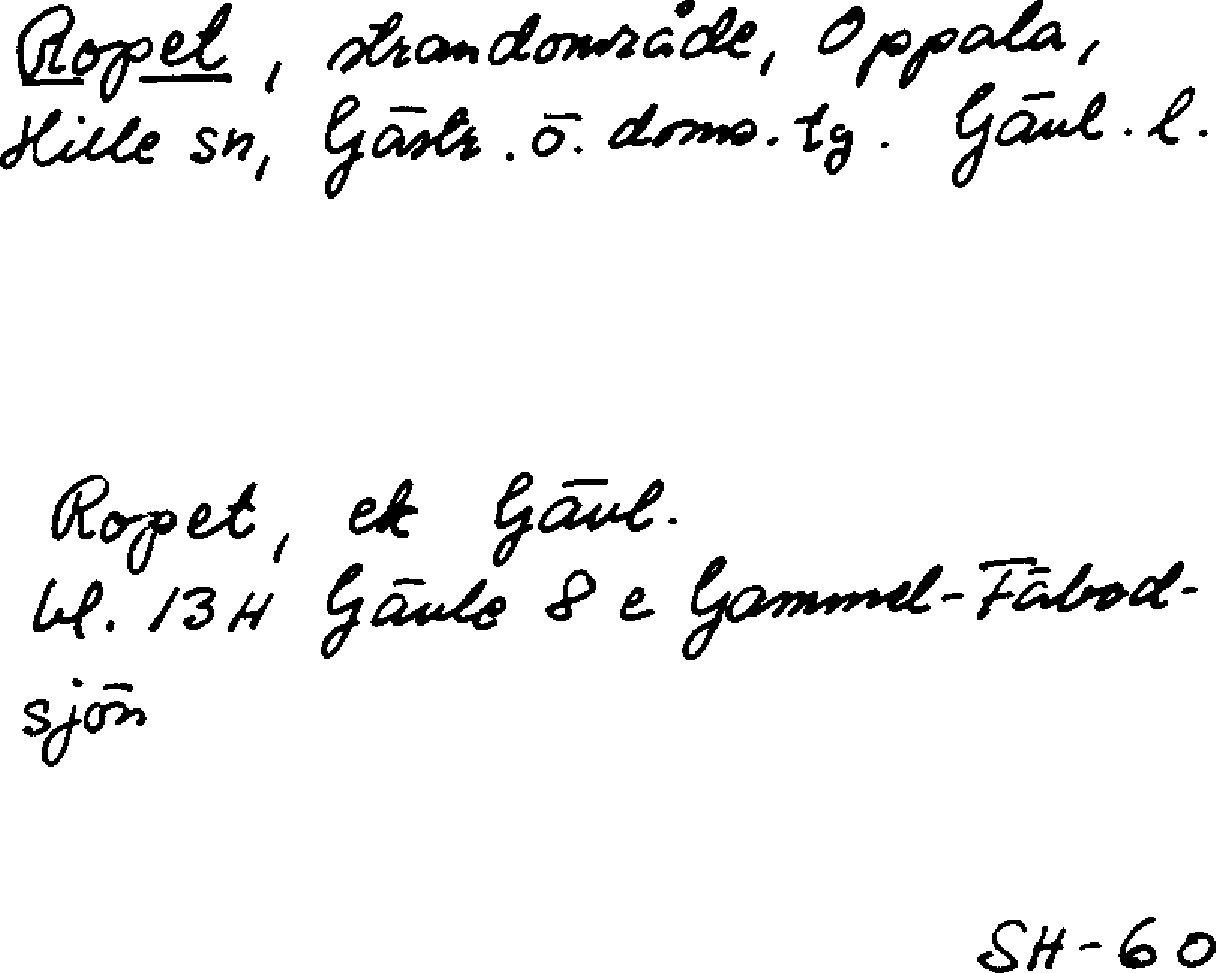 Ropet, strandområde, Oppala,
Hille sn, Gästr. ö. doms. tg. Gävl. l.
Ropet, ek Gävl.
bl. 13 H Gävle 8 e Gammel-Fäbod-
sjön
SH-60